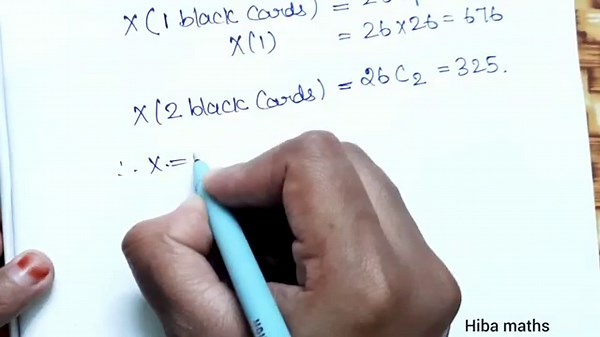 X(1 black cards) = 26
X(1) = 26×26 = 676
X(2 black Cards) = 26C₂ = 325.
∴ X =
Hiba maths